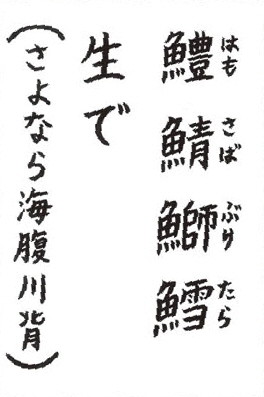 鱧鯖鰤鱈
はも さば ぶり たら
生で
(さよなら海腹川背)